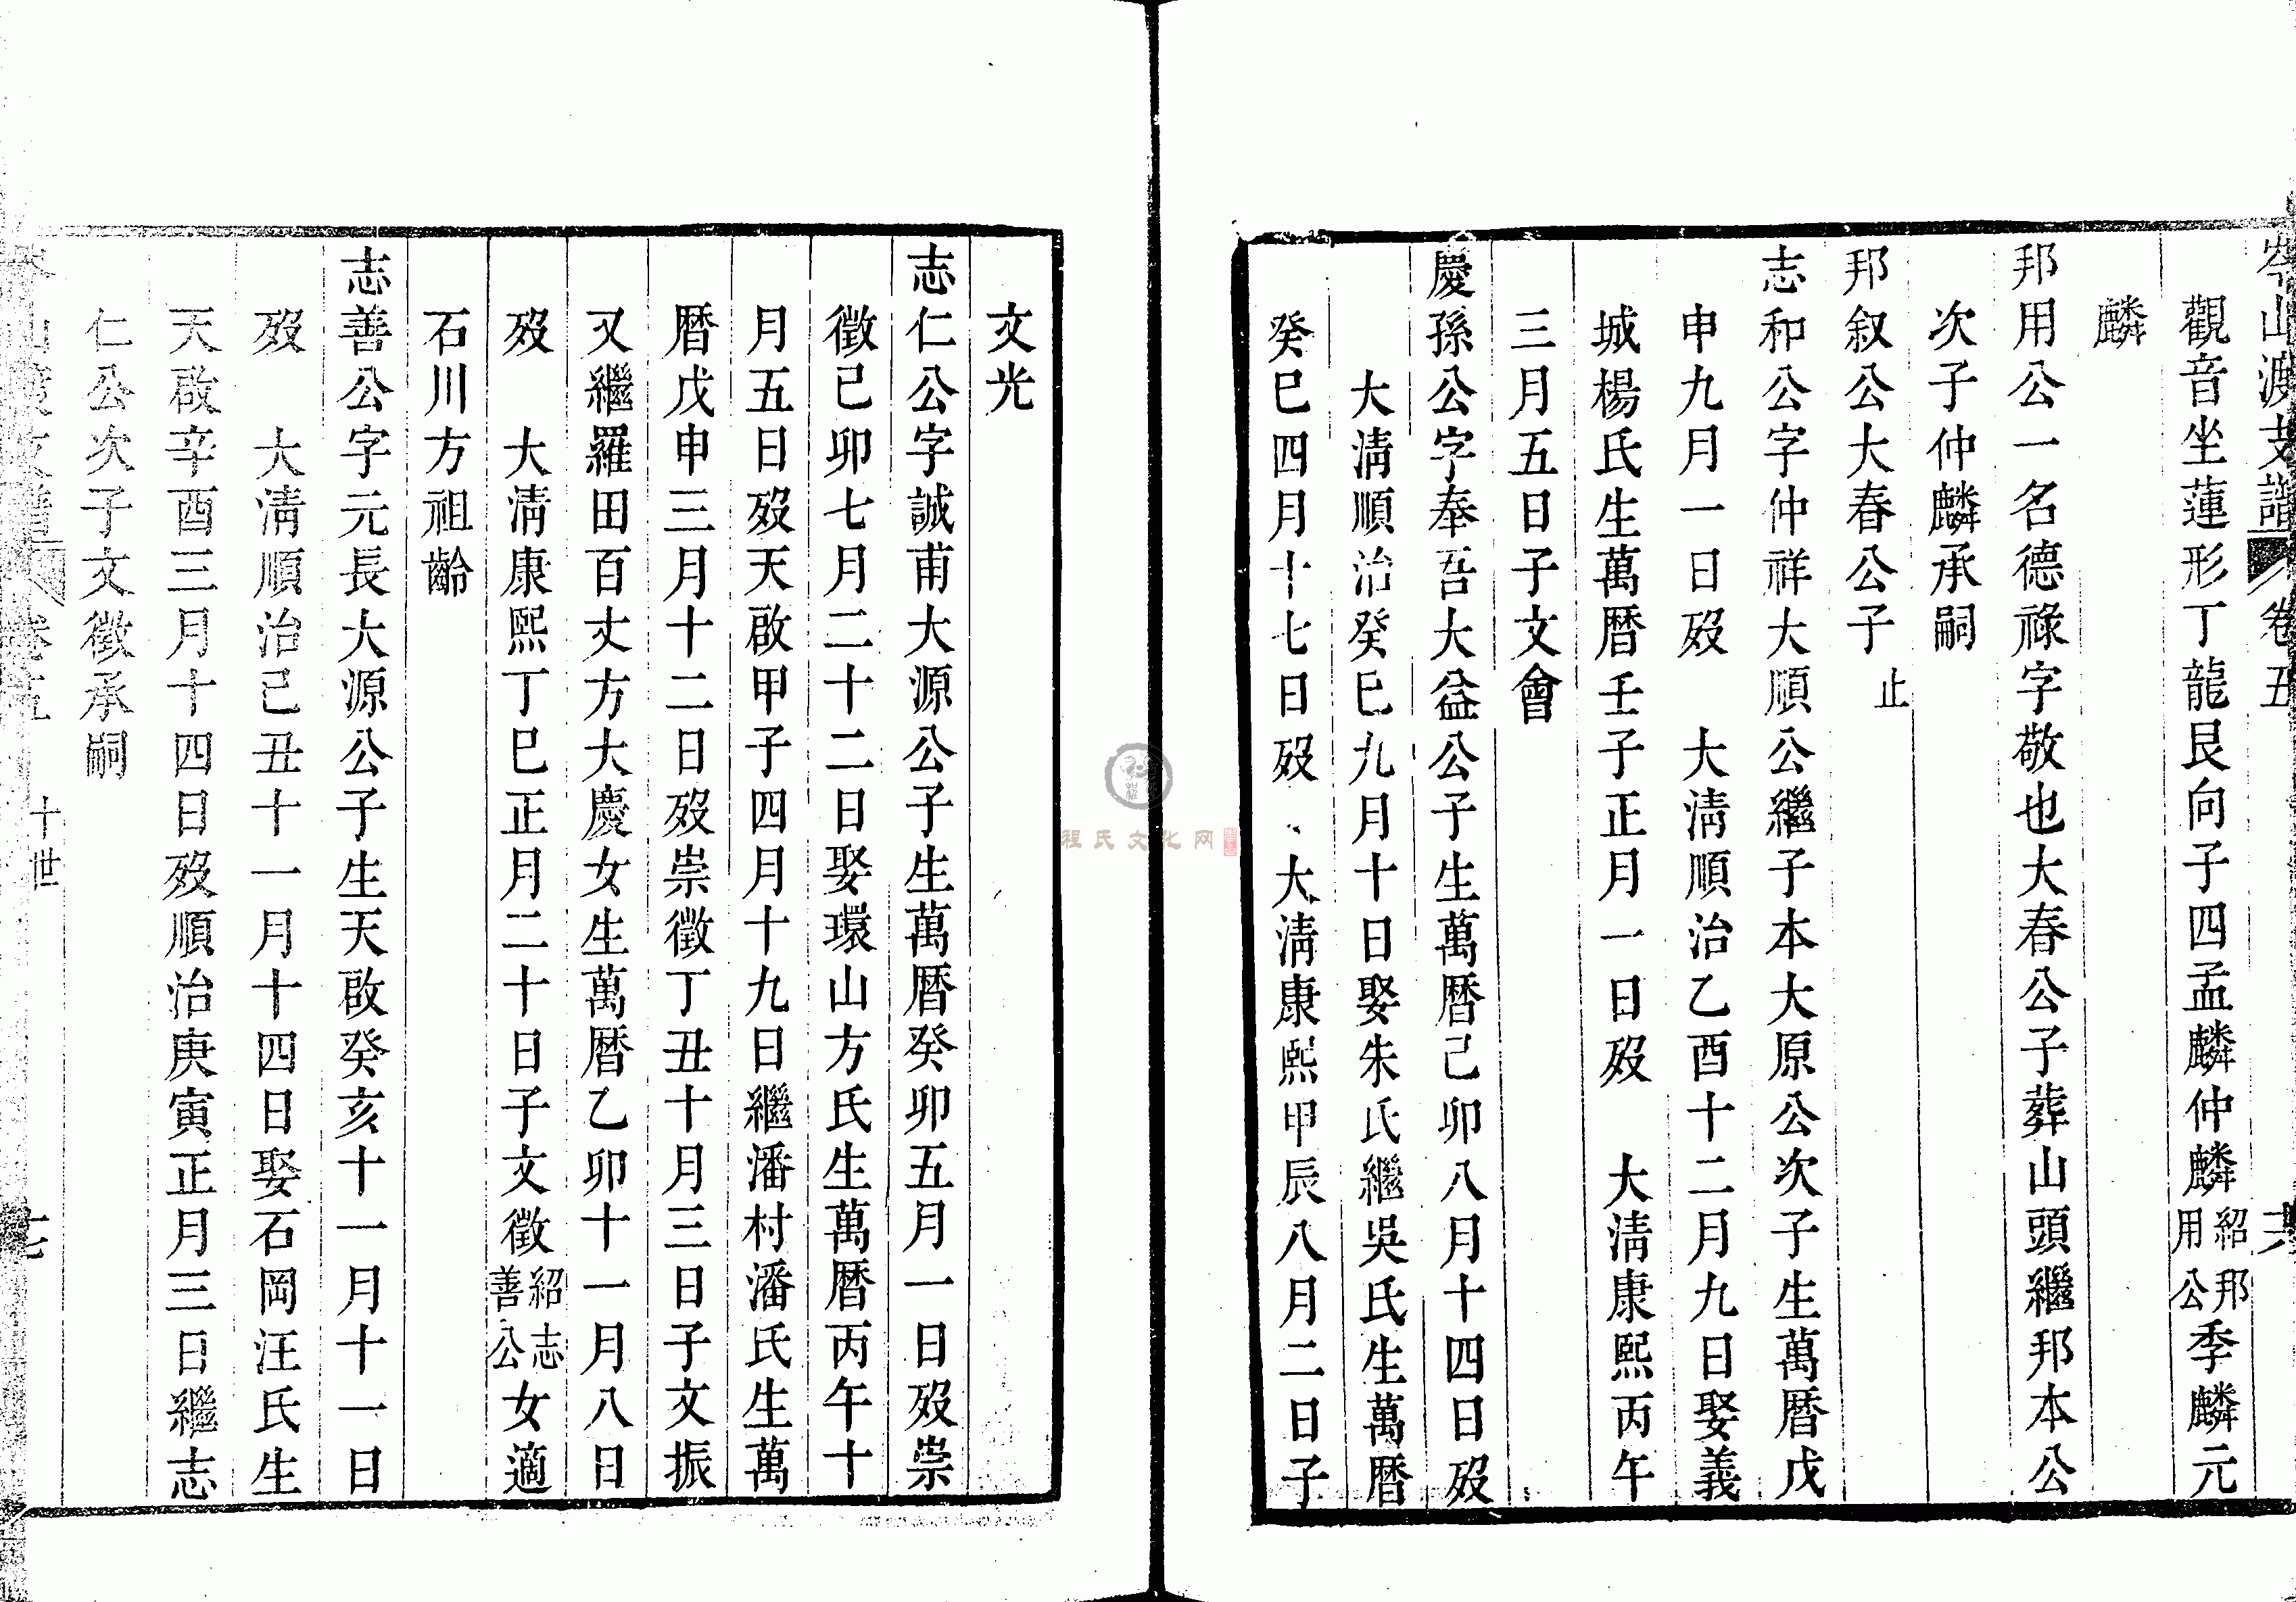 岑山渡支譜 卷五 六
觀音坐蓮形丁龍艮向子四孟麟仲麟紹邦用公季麟元
麟
邦用公一名德祿字敬也大春公子葬山頭繼邦本公
次子仲麟承嗣
邦叙公大春公子 止
志和公字仲祥大順公繼子本大原公次子生萬曆戊
申九月一日歿 大淸順治乙酉十二月九日娶義
城楊氏生萬曆壬子正月一日歿 大淸康熙丙午
三月五日子文會
慶孫公字奉吾大益公子生萬曆己卯八月十四日歿
大淸順治癸巳九月十日娶朱氏繼吳氏生萬曆
癸巳四月十七日歿 大淸康熙甲辰八月二日子
程氏文化网
文光
志仁公字誠甫大源公子生萬曆癸卯五月一日歿崇
徵己卯七月二十二日娶環山方氏生萬曆丙午十
月五日歿天啟甲子四月十九日繼潘村潘氏生萬
曆戊申三月十二日歿崇徵丁丑十月三日子文振
又繼羅田百丈方大慶女生萬曆乙卯十一月八日
歿 大淸康熙丁巳正月二十日子文徵紹志善公女適
石川方祖齡
志善公字元長大源公子生天啟癸亥十一月十一日
歿 大淸順治己丑十一月十四日娶石岡汪氏生
天啟辛酉三月十四日歿順治庚寅正月三日繼志
仁公次子文徵承嗣
山渡支譜 卷五 十世 七